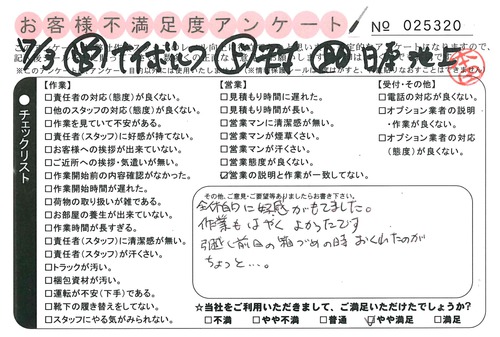 お客様不満足度アンケート
No 025320
7/3
チェックリスト
【作業】
□責任者の対応(態度)が良くない。
□他のスタッフの対応(態度)が良くない。
□作業を見ていて不安がある。
□責任者(スタッフ)に好感が持てない。
□お客様への挨拶が出来ていない。
□ご近所への挨拶・気遣いが無い。
□作業開始前の内容確認がなかった。
□作業開始時間が遅れた。
□荷物の取り扱いが雑である。
□お部屋の養生が出来ていない。
□作業時間が長すぎる。
□責任者(スタッフ)に清潔感が無い。
□責任者(スタッフ)が汗くさい。
□トラックが汚い。
□梱包資材が汚い。
□運転が不安(下手)である。
□靴下の履き替えをしてない。
□スタッフにやる気がみられない。
【営業】
□見積もり時間に遅れた。
□見積もり時間が長い。
□営業マンに清潔感が無い。
□営業マンが煙草くさい。
□営業マンが汗くさい。
□営業態度が良くない。
☑営業の説明と作業が一致してない。
【受付・その他】
□電話の対応が良くない。
□オプション業者の説明
・作業が良くない。
□オプション業者の対応
(態度)が良くない。
その他、ご意見・ご要望等ありましたらお書き下さい。
全体的に好感がもてました。
作業もはやく よかったです
引越し前日の箱づめの時 おくれたのが
ちょっと…。
☆当社をご利用いただきまして、ご満足いただけたでしょうか?
□不満 □やや不満 □普通 ☑やや満足 □満足